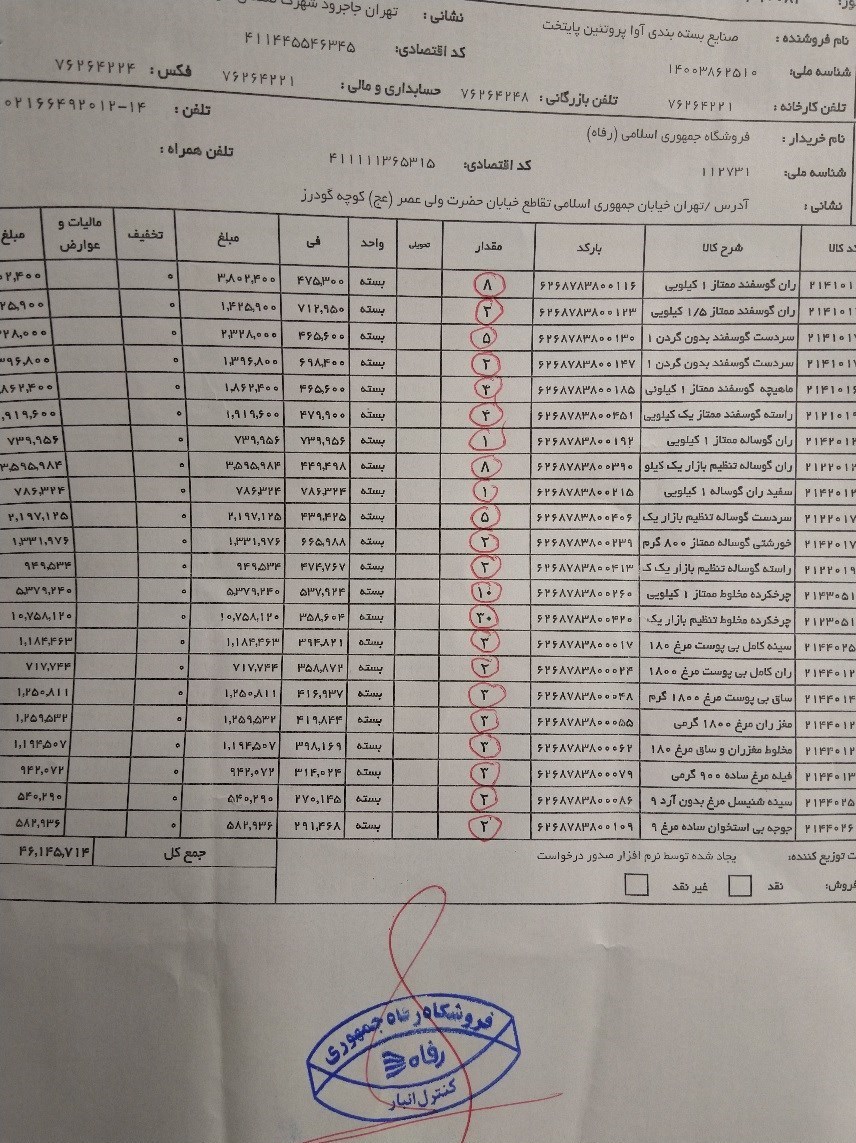 نام فروشنده : صنایع بسته بندی آوا پروتئین پایتخت
نشانی : تهران جاجرود شهرک
شناسه ملی: ۱۴۰۰۳۸۶۲۵۱۰
کد اقتصادی: ۴۱۱۴۴۵۵۴۶۳۴۵
تلفن کارخانه : ۷۶۲۶۴۲۲۱
تلفن بازرگانی : ۷۶۲۶۴۲۴۸
حسابداری و مالی : ۷۶۲۶۴۲۲۱
فکس : ۷۶۲۶۴۲۲۴
نام خریدار : فروشگاه جمهوری اسلامی (رفاه)
تلفن : ۰۲۱۶۶۴۹۲۰۱۲-۱۴
شناسه ملی: ۱۱۲۷۳۱
کد اقتصادی: ۴۱۱۱۱۱۳۶۵۳۱۵
تلفن همراه :
نشانی : آدرس /تهران خیابان جمهوری اسلامی تقاطع خیابان حضرت ولی عصر (عج) کوچه گودرز
کد کالا شرح کالا بارکد مقدار تحویلی واحد فی مبلغ تخفیف مالیات و عوارض مبلغ
۲۱۴۱۰۱ ران گوسفند ممتاز ۱ کیلویی ۶۲۶۸۷۸۳۸۰۰۱۱۶ ۸ بسته ۴۷۵,۳۰۰ ۳,۸۰۲,۴۰۰ ۰ ۰۲,۴۰۰
۲۱۴۱۰۱ ران گوسفند ممتاز ۱/۵ کیلویی ۶۲۶۸۷۸۳۸۰۰۱۲۳ ۲ بسته ۷۱۲,۹۵۰ ۱,۴۲۵,۹۰۰ ۰ ۲۵,۹۰۰
۲۱۴۱۰۱۷ سردست گوسفند بدون گردن ۱ ۶۲۶۸۷۸۳۸۰۰۱۳۰ ۵ بسته ۴۶۵,۶۰۰ ۲,۳۲۸,۰۰۰ ۰ ۲۸,۰۰۰
۲۱۴۱۰۱۷ سردست گوسفند بدون گردن ۱ ۶۲۶۸۷۸۳۸۰۰۱۴۷ ۲ بسته ۶۹۸,۴۰۰ ۱,۳۹۶,۸۰۰ ۰ ۳۹۶,۸۰۰
۲۱۴۱۰۱۶ ماهیچه گوسفند ممتاز ۱ کیلوئی ۶۲۶۸۷۸۳۸۰۰۱۸۵ ۴ بسته ۴۶۵,۶۰۰ ۱,۸۶۲,۴۰۰ ۰ ۸۶۲,۴۰۰
۲۱۲۱۰۱۹ راسته گوسفند ممتاز یک کیلویی ۶۲۶۸۷۸۳۸۰۰۴۵۱ ۴ بسته ۴۷۹,۹۰۰ ۱,۹۱۹,۶۰۰ ۰ ,۹۱۹,۶۰۰
۲۱۴۲۰۱۲ ران گوساله ممتاز ۱ کیلویی ۶۲۶۸۷۸۳۸۰۰۱۹۲ ۱ بسته ۷۳۹,۹۵۶ ۷۳۹,۹۵۶ ۰ ۷۳۹,۹۵۶
۲۱۲۲۰۱۲ ران گوساله تنظیم بازار یک کیلو ۶۲۶۸۷۸۳۸۰۰۳۹۰ ۸ بسته ۴۴۹,۴۹۸ ۳,۵۹۵,۹۸۴ ۰ ۳,۵۹۵,۹۸۴
۲۱۴۲۰۱۲ سفید ران گوساله ۱ کیلویی ۶۲۶۸۷۸۳۸۰۰۲۱۵ ۱ بسته ۷۸۶,۳۲۴ ۷۸۶,۳۲۴ ۰ ۷۸۶,۳۲۴
۲۱۲۲۰۱۷ سردست گوساله تنظیم بازار یک ۶۲۶۸۷۸۳۸۰۰۴۰۶ ۵ بسته ۴۳۹,۴۲۵ ۲,۱۹۷,۱۲۵ ۰ ۲,۱۹۷,۱۲۵
۲۱۴۲۰۱۷ خورشتی گوساله ممتاز ۸۰۰ گرم ۶۲۶۸۷۸۳۸۰۰۲۳۹ ۲ بسته ۶۶۵,۹۸۸ ۱,۳۳۱,۹۷۶ ۰ ۱,۳۳۱,۹۷۶
۲۱۲۲۰۱۹ راسته گوساله تنظیم بازار یک ک ۶۲۶۸۷۸۳۸۰۰۴۱۳ ۲ بسته ۴۷۴,۷۶۷ ۹۴۹,۵۳۴ ۰ ۹۴۹,۵۳۴
۲۱۴۳۰۵۱ چرخکرده مخلوط ممتاز ۱ کیلویی ۶۲۶۸۷۸۳۸۰۰۲۶۰ ۱۰ بسته ۵۳۷,۹۲۴ ۵,۳۷۹,۲۴۰ ۰ ۵,۳۷۹,۲۴۰
۲۱۲۳۰۵۱ چرخکرده مخلوط تنظیم بازار یک ۶۲۶۸۷۸۳۸۰۰۴۲۰ ۳۰ بسته ۳۵۸,۶۰۴ ۱۰,۷۵۸,۱۲۰ ۰ ۱۰,۷۵۸,۱۲۰
۲۱۴۴۰۲۵ سینه کامل بی پوست مرغ ۱۸۰ ۶۲۶۸۷۸۳۸۰۰۰۱۷ ۳ بسته ۳۹۴,۸۲۱ ۱,۱۸۴,۴۶۳ ۰ ۱,۱۸۴,۴۶۳
۲۱۴۴۰۱۲ ران کامل بی پوست مرغ ۱۸۰۰ ۶۲۶۸۷۸۳۸۰۰۰۲۴ ۲ بسته ۳۵۸,۸۷۲ ۷۱۷,۷۴۴ ۰ ۷۱۷,۷۴۴
۲۱۴۴۰۱۴ ساق بی پوست مرغ ۱۸۰۰ گرم ۶۲۶۸۷۸۳۸۰۰۰۴۸ ۳ بسته ۴۱۶,۹۳۷ ۱,۲۵۰,۸۱۱ ۰ ۱,۲۵۰,۸۱۱
۲۱۴۴۰۱۲ مغز ران مرغ ۱۸۰۰ گرمی ۶۲۶۸۷۸۳۸۰۰۰۵۵ ۳ بسته ۴۱۹,۸۴۴ ۱,۲۵۹,۵۳۲ ۰ ۱,۲۵۹,۵۳۲
۲۱۴۴۰۱۲ مخلوط مغزران و ساق مرغ ۱۸۰ ۶۲۶۸۷۸۳۸۰۰۰۶۲ ۳ بسته ۳۹۸,۱۶۹ ۱,۱۹۴,۵۰۷ ۰ ۱,۱۹۴,۵۰۷
۲۱۴۴۰۱۳ فیله مرغ ساده ۹۰۰ گرمی ۶۲۶۸۷۸۳۸۰۰۰۷۹ ۳ بسته ۳۱۴,۰۲۴ ۹۴۲,۰۷۲ ۰ ۹۴۲,۰۷۲
۲۱۴۴۰۲۵ سینه شنیسل مرغ بدون آرد ۹ ۶۲۶۸۷۸۳۸۰۰۰۸۶ ۲ بسته ۲۷۰,۱۴۵ ۵۴۰,۲۹۰ ۰ ۵۴۰,۲۹۰
۲۱۴۴۰۲۶ جوجه بی استخوان ساده مرغ ۹ ۶۲۶۸۷۸۳۸۰۰۱۰۹ ۲ بسته ۲۹۱,۴۶۸ ۵۸۲,۹۳۶ ۰ ۵۸۲,۹۳۶
ت توزیع کننده: یجاد شده توسط نرم افزار صدور درخواست
جمع کل ۴۶,۱۴۵,۷۱۴
فروش: نقد غیر نقد
فروشگاه رفاه جمهوری
رفاه
کنترل انبار